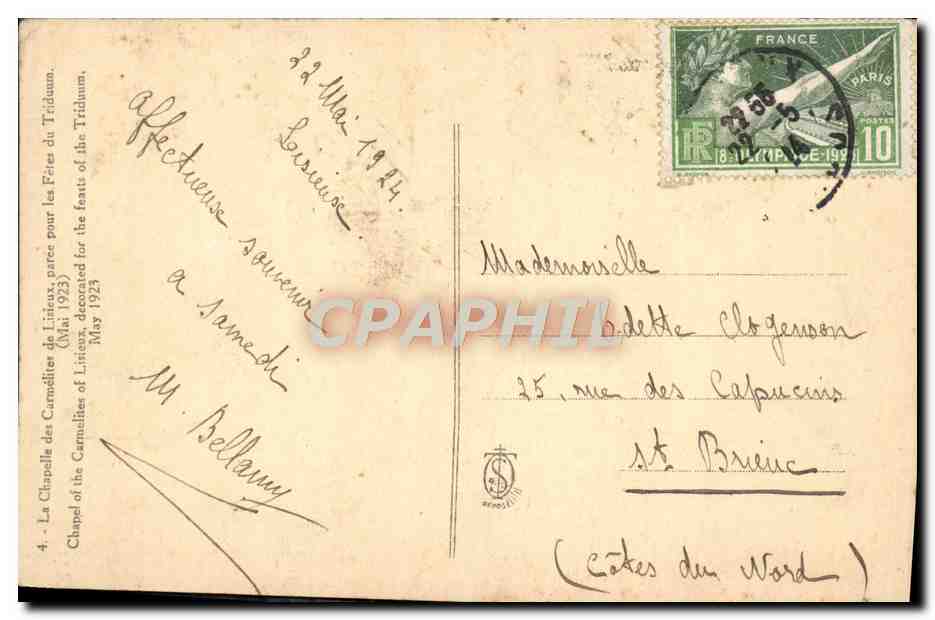 4. - La Chapelle des Carmélites de Lisieux, parée pour les Fêtes du Triduum.
(Mai 1923)
Chapel of the Carmelites of Lisieux, decorated for the feasts of the Triduum,
May 1923
22 Mai 1924.
Lisieux.
affectueux souvenir
a samedi
M. Bellamy
FRANCE
PARIS
POSTES
RF
8e OLYMPIADE-1924
10
22 -5
Mademoiselle
Odette Clogenson
25, rue des Capucins
St Brieuc
(Côtes du Nord)
CPAPHIL